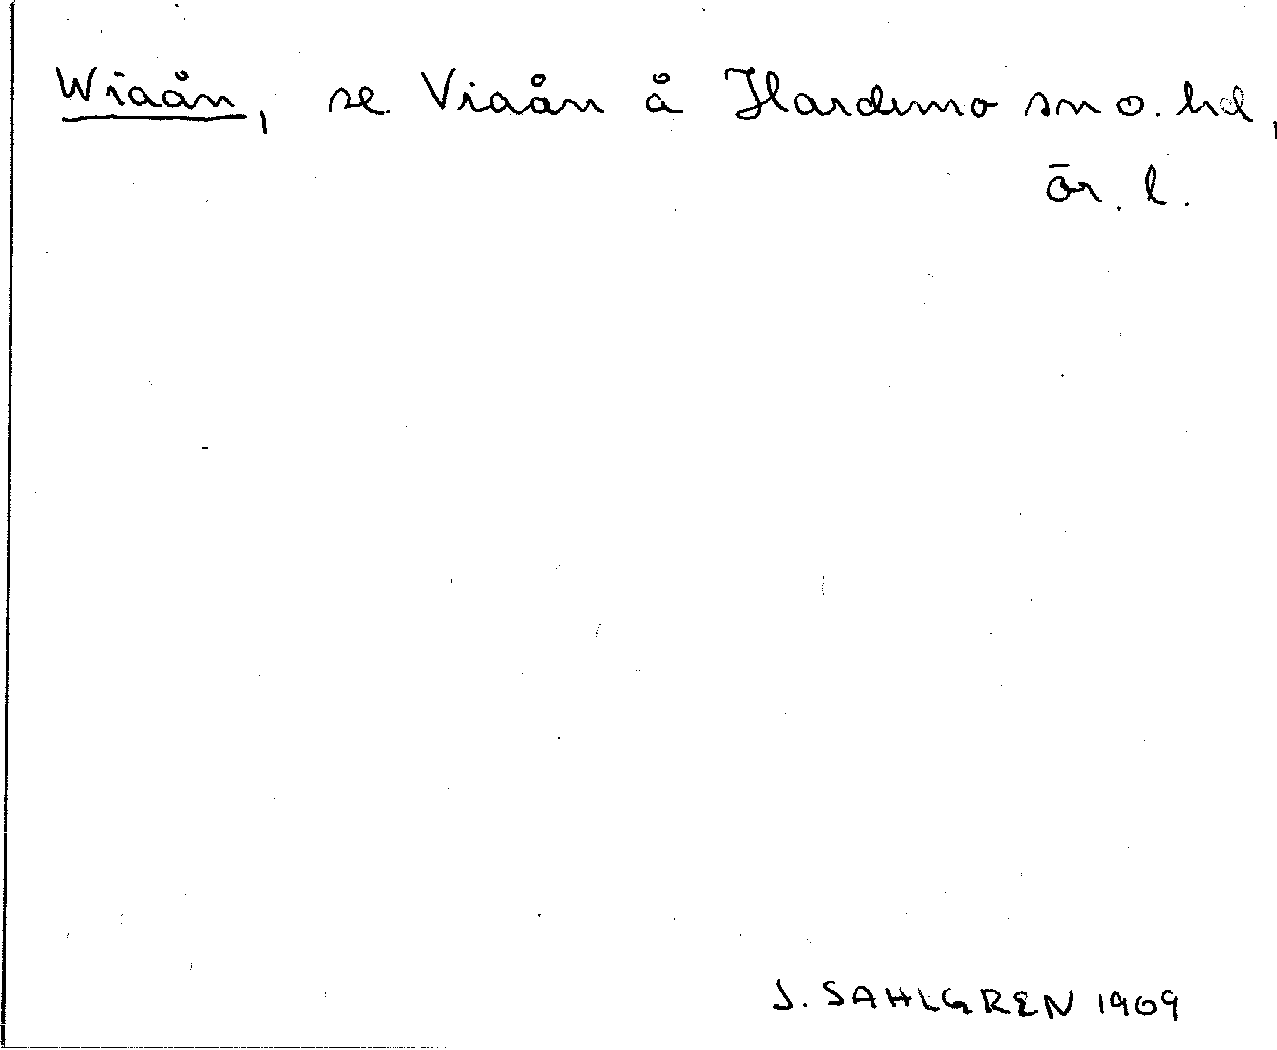 Wiaån, se Viaån å Hardemo sn o. hd,
ör. l.
J. SAHLGREN 1909